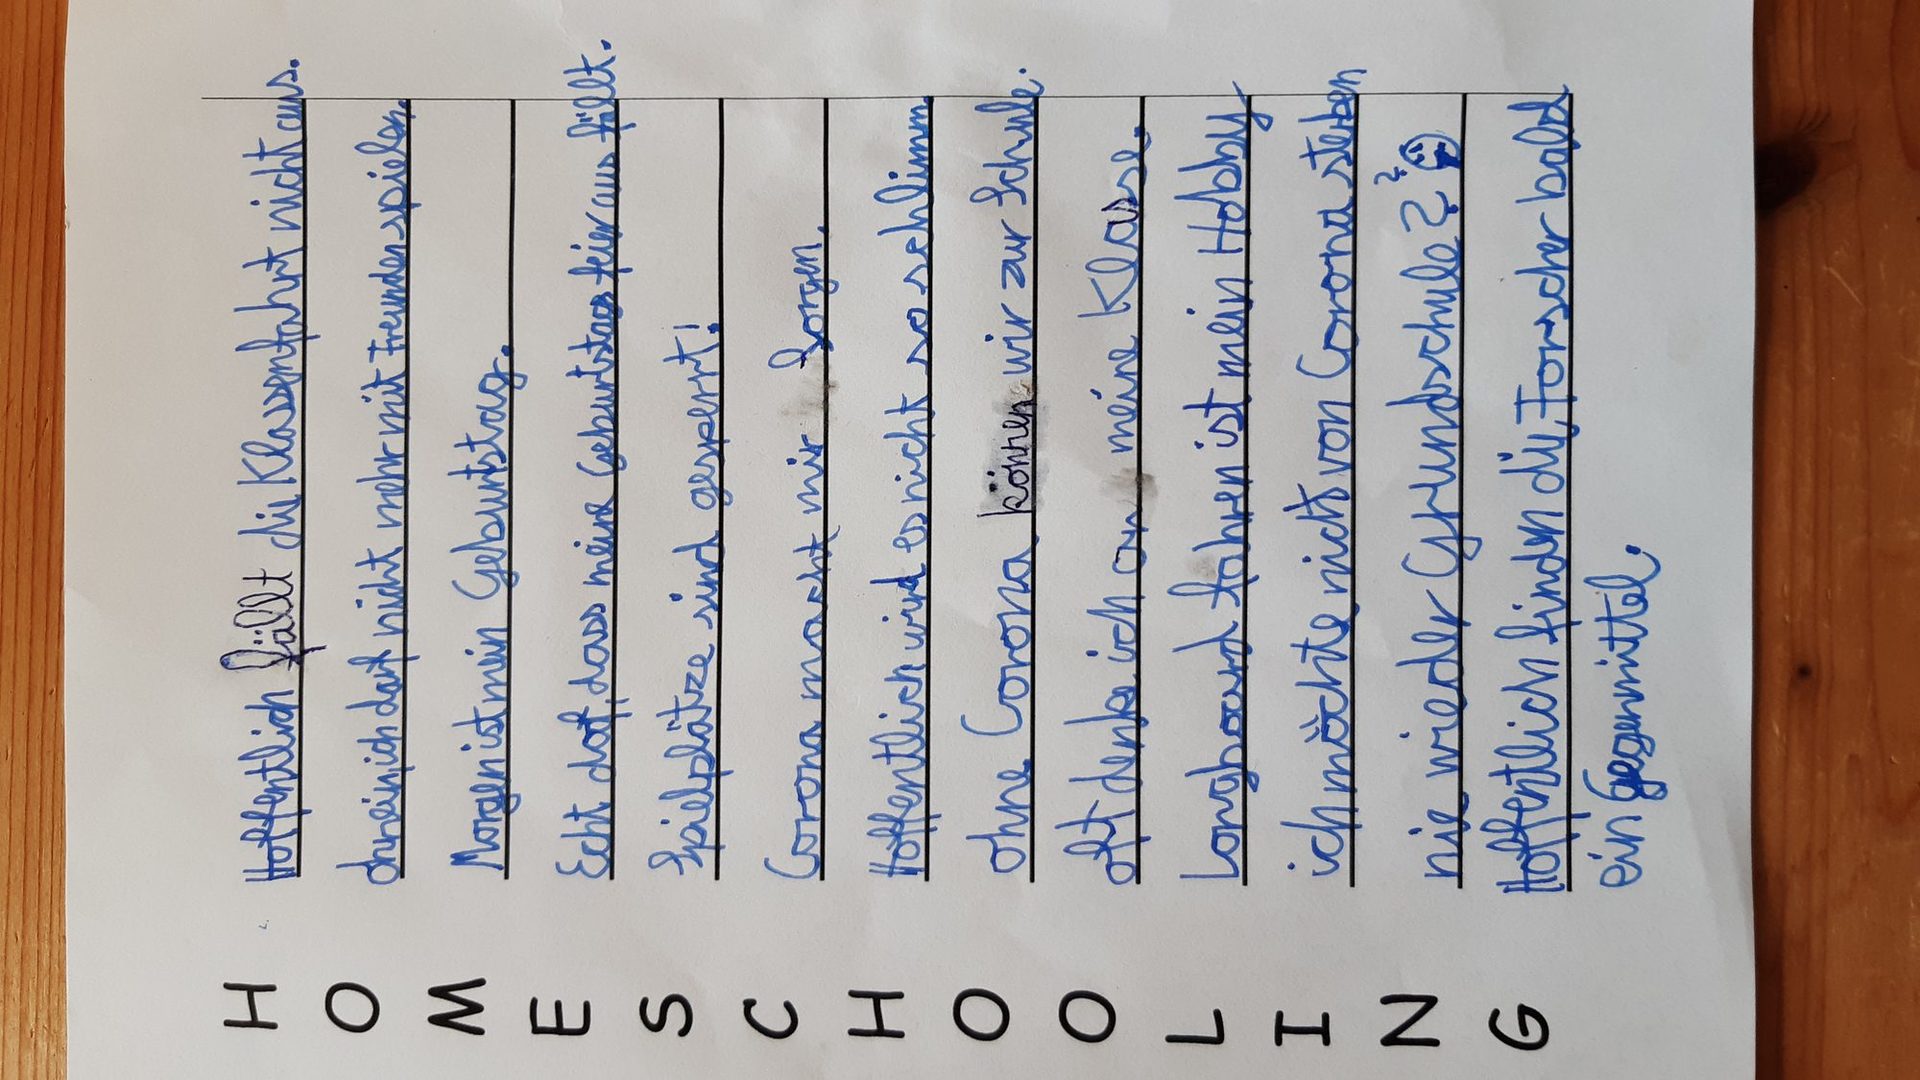 H Hoffentlich fällt die Klassenfahrt nicht aus.
O darf nicht mehr mit Freunden spielen
M Morgen ist mein Geburtstag.
E Echt dof, dass meine Geburtstagsfeier aus fällt.
S Spielplätze sind gesperrt!
C Corona macht mir Sorgen.
H Hoffentlich wird es nicht so schlimm.
O ohne Corona können wir zur Schule.
O oft denke ich an meine Klasse.
L Longboard fahren ist mein Hobby
I ich möchte nicht von Corona sterben
N nie wieder Grundschule??
G Hoffentlich finden die Forscher bald
ein Gegenmittel.